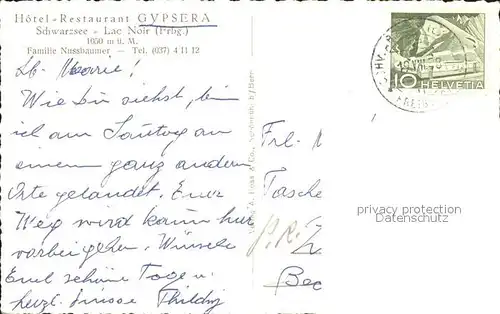 Hôtel-Restaurant GYPSERA
Schwarzsee - Lac Noir (Frbg.)
1050 m ü. M.
Familie Nussbaumer — Tel. (037) 4 11 12
HELVETIA
10
Lb. Marie!
Wie du siehst, bin
ich am Sonntag an
einem ganz andern
Orte gelandet. Euer
Weg wird kaum hier
vorbei gehen. Wünsche
Euch schöne Tage u.
herzl. Grüsse
Frl.
Tasche
P.R.
privacy protection
Datenschutz